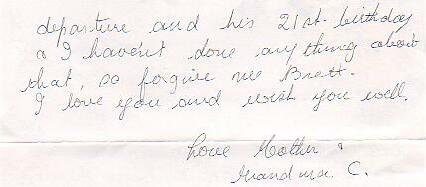 departure and his 21st. birthday
& I haven't done anything about
that, so forgive me Brett.
I love you and wish you well.
Love Mother &
Grandma C.